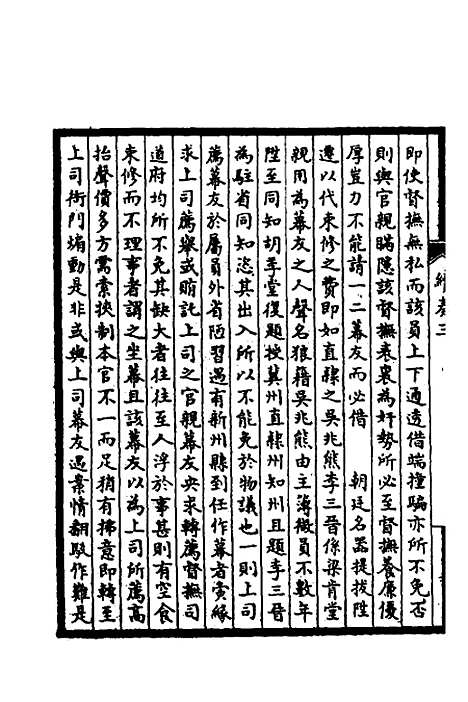 即使督撫無私而該員上下通透借端撞騙亦所不免否
則與官親瞞隱該督撫表裏為奸勢所必至督撫養廉優
厚豈力不能請一二幕友而必借 朝廷名器提拔陞
遷以代束修之費即如直隸之吳兆熊李三晉係梁肯堂
親用為幕友之人聲名狼籍吳兆熊由主簿微員不數年
陞至同知胡季堂復題授冀州直隸州知州且題李三晉
為駐省同知恣其出入所以不能免於物議也一則上司
薦幕友於屬員外省陋習遇有新州縣到任作幕者夤緣
求上司薦舉或賄託上司之官親幕友央求轉薦督撫司
道府均所不免其缺大者往往至人浮於事甚則有空食
束修而不理事者謂之坐幕且該幕友以為上司所薦高
抬聲價多方需索挾制本官不一而足稍有拂意即轉至
上司衙門煽動是非或與上司幕友遇案情翻駁作難是
續卷三